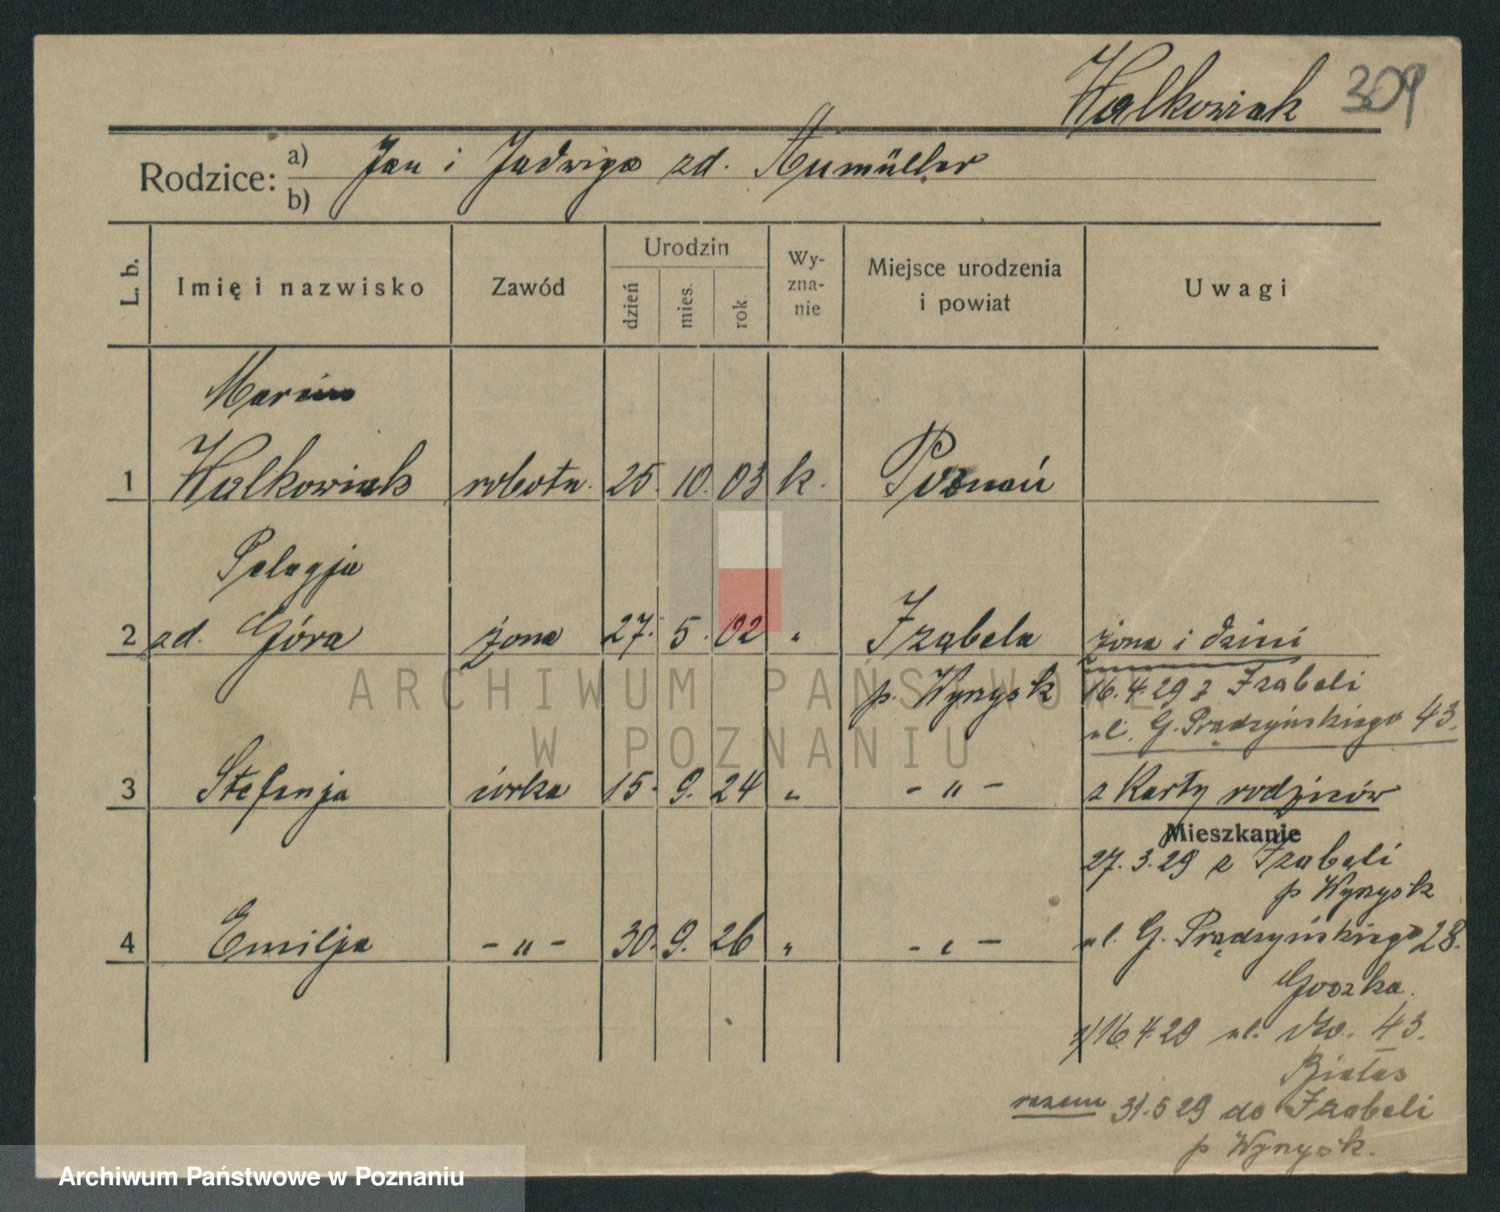 Walkowiak 309
Rodzice: a) Jan i Jadwiga zd. Aumüller
b)
L. b. Imię i nazwisko Zawód Urodzin dzień mies. rok Wy-zna-nie Miejsce urodzenia i powiat Uwagi
Marcin
1 Walkowiak robotn. 25. 10. 03 k. Poznań
Pelagja
2 zd. Góra żona 27. 5. 02 „ Izabela żona i dzieci
p. Wyrzysk 16.4.29 z Izabeli
ul. G. Prądzyńskiego 43.
3 Stefanja córka 15. 9. 24 „ - „ - z Karty rodziców
Mieszkanie
27.3.29 z Izabeli
p Wyrzysk
4 Emilja - „ - 30. 9. 26 „ - „ - ul. G. Prądzyńskiego 28.
Goszka.
16.4.29 ul. dto. 43.
Białas
razem 31.5 29 do Izabeli
p Wyrzysk.
ARCHIWUM PAŃSTWOWE
W POZNANIU
Archiwum Państwowe w Poznaniu